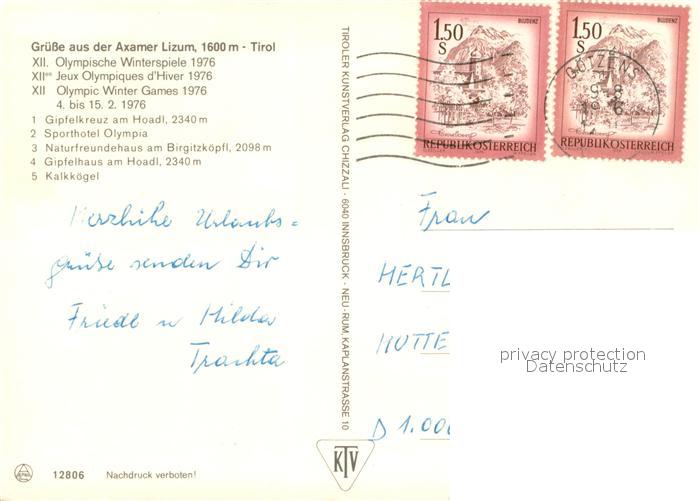 Grüße aus der Axamer Lizum, 1600 m - Tirol
XII. Olympische Winterspiele 1976
XIIes Jeux Olympiques d'Hiver 1976
XII Olympic Winter Games 1976
4. bis 15. 2. 1976
1 Gipfelkreuz am Hoadl, 2340 m
2 Sporthotel Olympia
3 Naturfreundehaus am Birgitzköpfl, 2098 m
4 Gipfelhaus am Hoadl, 2340 m
5 Kalkkögel
Herzliche Urlaubs=
grüße senden Dir
Friedl u Hilda
Trachta
12806 Nachdruck verboten!
TIROLER KUNSTVERLAG CHIZZALI · 6040 INNSBRUCK - NEU-RUM, KAPLANSTRASSE 10
KTV
1.50 S
BLUDENZ
REPUBLIK ÖSTERREICH
1.50 S
BLUDENZ
REPUBLIK ÖSTERREICH
GÖTZENS
Frau
HERTL
HUTTE
D 1.000
privacy protection
Datenschutz